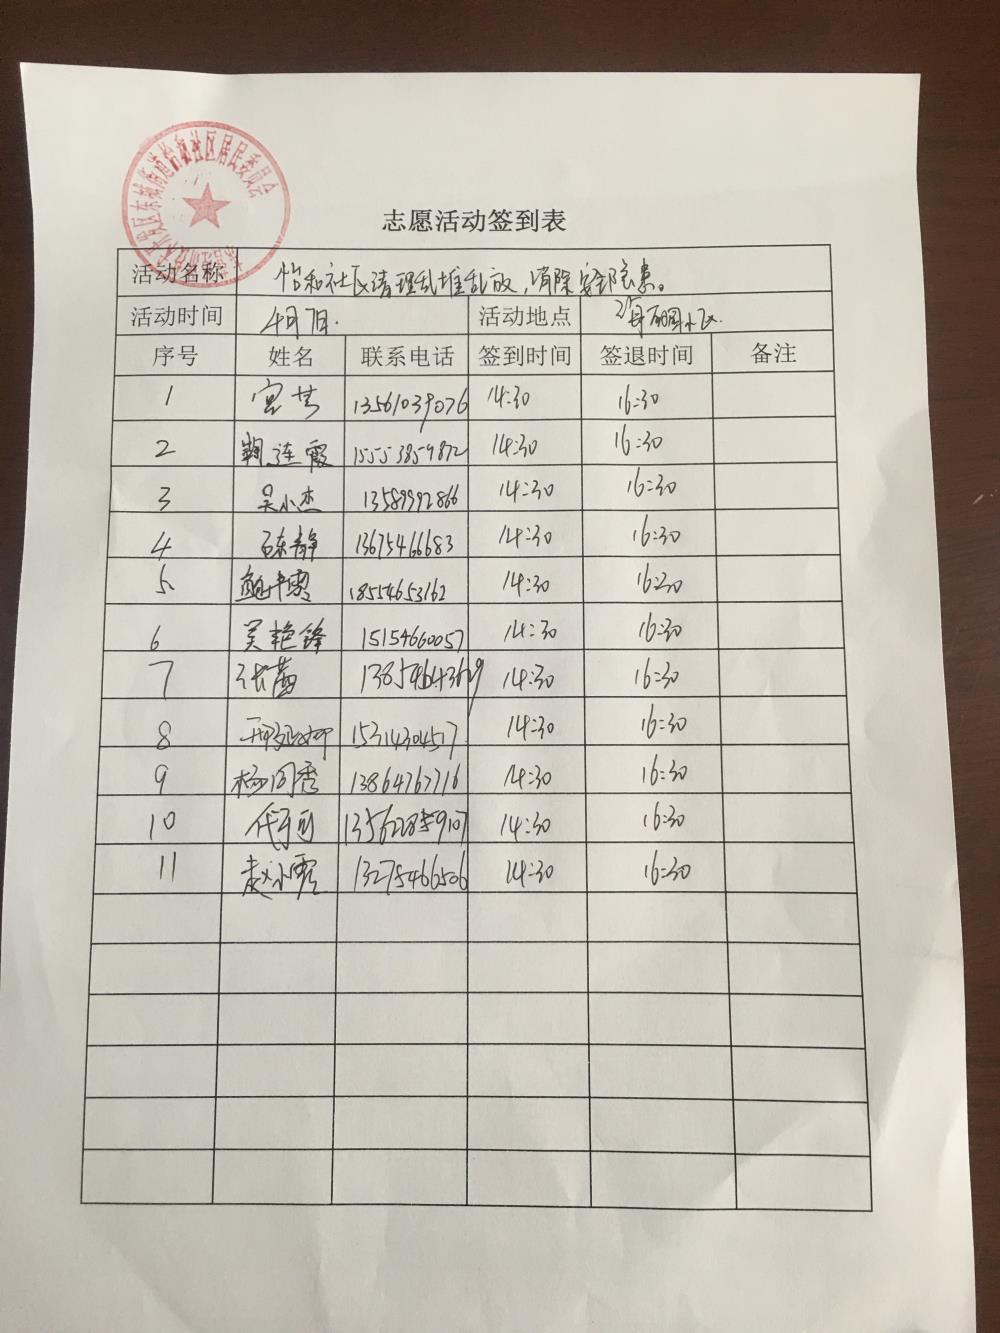 志愿活动签到表
活动名称 怡和社区清理乱堆乱放，消除安全隐患。
活动时间 4月7日. 活动地点 小区.
序号 姓名 联系电话 签到时间 签退时间 备注
1 宫芳 13561039076 14:30 16:30
2 连霞 15553859872 14:30 16:30
3 吴小杰 13589992866 14:30 16:30
4 陈静 13675466683 14:30 16:30
5 18554653162 14:30 16:30
6 吴艳锋 15154660057 14:30 16:30
7 张茜 13854643629 14:30 16:30
8 15314304517 14:30 16:30
9 杨同秀 13864767716 14:30 16:30
10 13562285907 14:30 16:30
11 赵小霞 13275466506 14:30 16:30